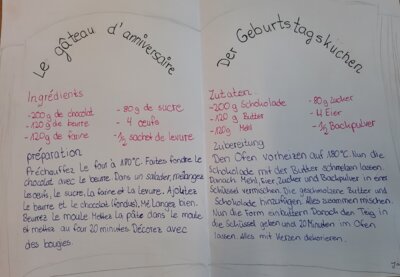 Le gâteau d'anniversaire
Ingrédients
-200g de chocolat
-120g de beurre
-120g de farine
- 80g de sucre
- 4 œufs
- ½ sachet de levure
préparation
Préchauffez Le four à 180°C. Faites fondre le
chocolat avec le beurre. Dans un saladier, mélangez
les œufs, le sucre. La farine et La Levure. Ajoutez
le beurre et le chocolat (fondus). Mélangez bien.
Beurrez le moule Mettez la pâte dans le moule
et mettez au four 20 minutes Décorez avec
des bougies.
Der Geburtstagskuchen
Zutaten
-200g Schokolade
-120g Butter
-120g Mehl
- 80g Zucker
- 4 Eier
- ½ Backpulver
Zubereitung
Den Ofen vorheizen auf 180°C. Nun die
Schokolade mit der Butter schmelzen lassen.
Danach Mehl, Eier, Zucker und Backpulver in einer
Schüssel vermischen. Die geschmolzene Butter und
Schokolade hinzufügen. Alles zusammen mischen.
Nun die Form einbuttern. Danach den Teig in
die Schüssel geben und 20 Minuten im Ofen
lassen. Alles mit Kerzen dekorieren.